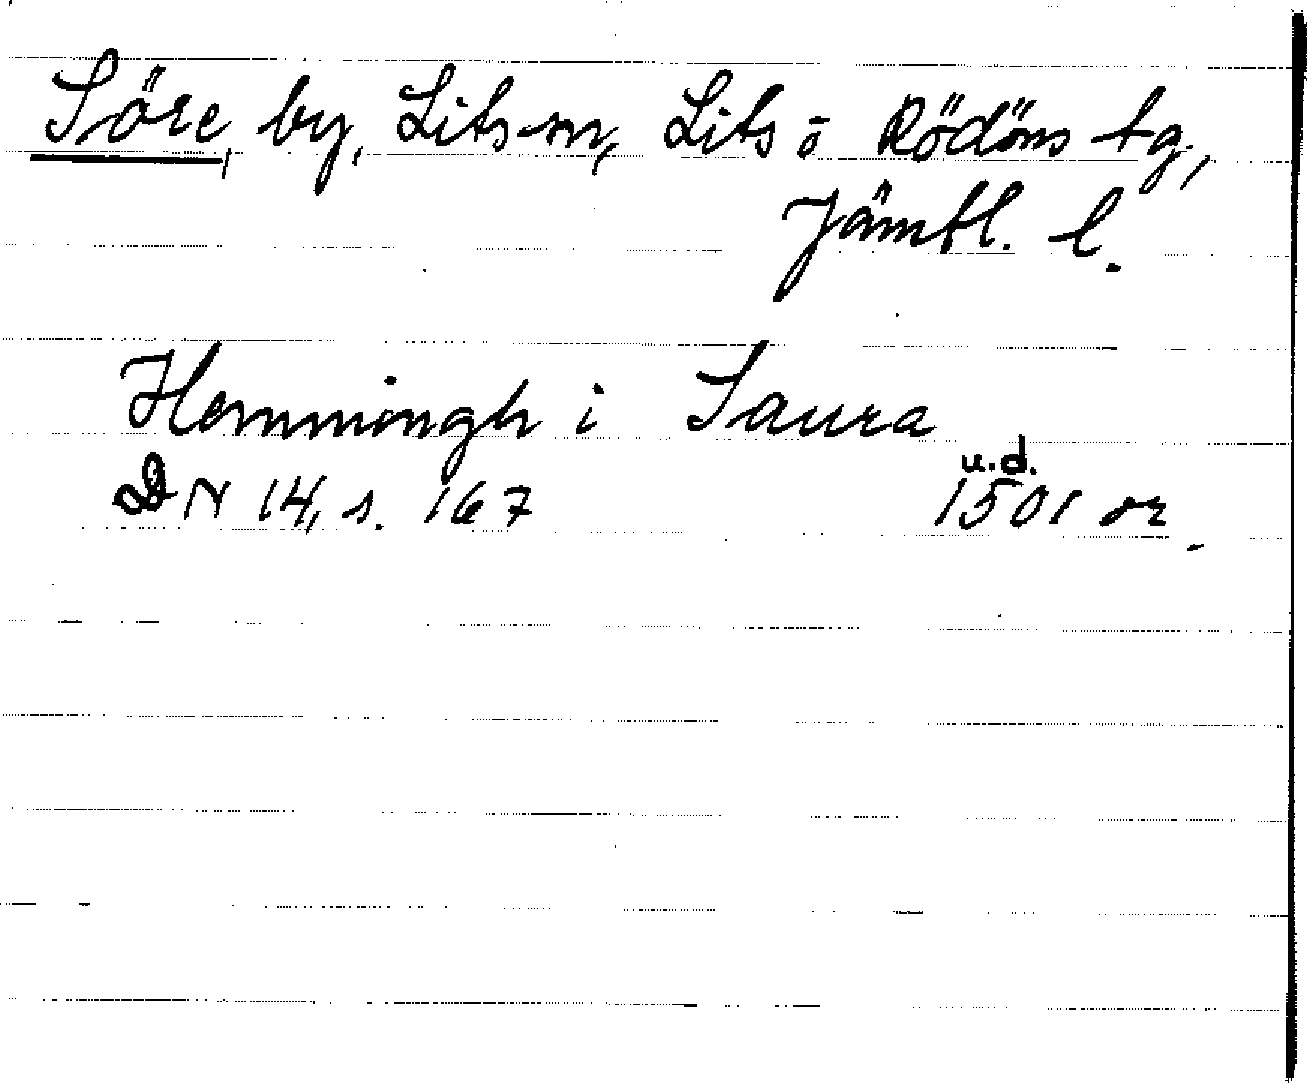 Söre, by, Lits sn, Lits o Rödöns tg,
Jämtl. l.
Hemmingh i Saura
DN 14, s. 167 u.d. 1501 or.